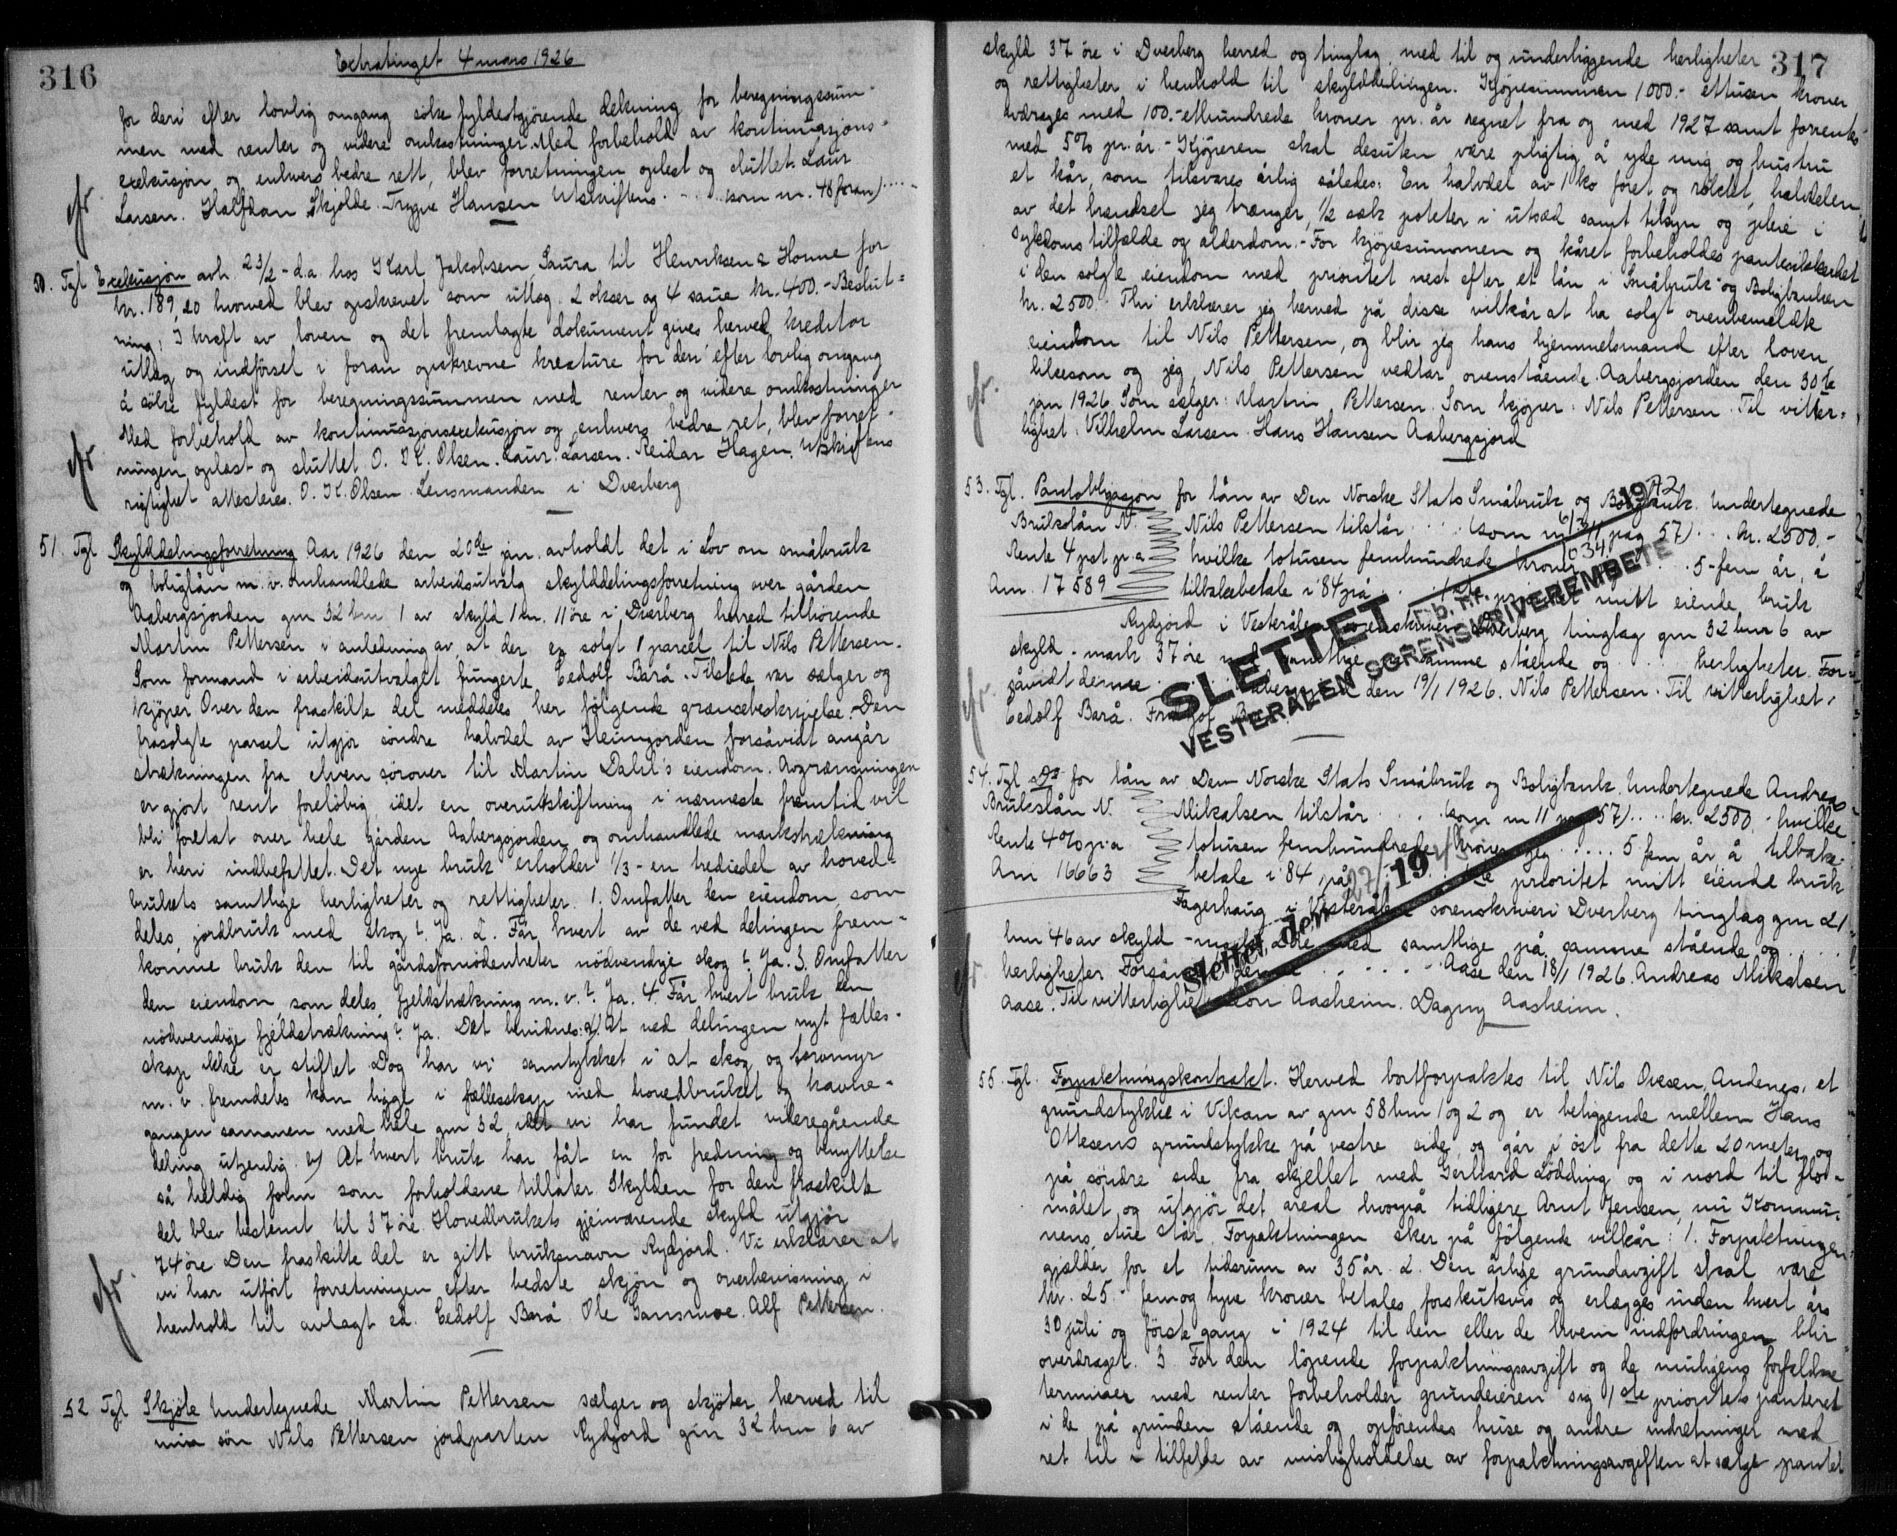 316
Extratinget 4 mars 1926
for deri efter lovlig omgang söke fyldestgjörende dekning for beregningssum-
men med renter og videre omkostninger. Med forbehold av kontinuasjons-
exekusjon og enhvers bedre rett, blev forretningen oplest og sluttet. Laur
Larsen. Halfdan Skjolde. Trygve Hansen Utskriftens . . . . (som nr. 48 foran) . . . .
50. Tgl Exekusjon avh. 23/2 - d.a. hos Karl Jakobsen Saura til Henriksen & Honne for
kr. 189,20 hvorved blev opskrevet som utlæg. 2 okser og 4 sauer kr. 400.- Beslut-
ning: I kraft av loven og det fremlagte dokument gives herved kreditor
utlæg og indförsel i foran opskrevne kreature for deri efter lovlig omgang
å söke fyldest for beregningssummen med renter og videre omkostninger
Med forbehold av kontinuasjonsexekusjon og enhvers bedre ret, blev forret-
ningen oplæst og sluttet O. K. Olsen. Laur. Larsen. Reidar Hagen. Utskriftens
rigtighet attesteres. O. K. Olsen Lensmanden i Dverberg
51. Tgl Skylddelingsforretning Aar 1926 den 20de jan. avholdt det i Lov om småbruk
og boliglån m.v. omhandlede arbeidsutvalg skylddelingsforretning over gården
Aabergsjorden gnr 32 bnr 1 av skyld 1 m. 11 öre i Dverberg herred tilhörende
Martin Pettersen i anledning av at der er solgt 1 parcel til Nils Pettersen.
Som formand i arbeidsutvalget fungerte Eedolf Barå. Tilstede var sælger og
kjöper Over den fraskilte del meddeles her fölgende grænsebeskrivelse: Den
frasolgte parsel utgjör söndre halvdel av Heimgorden forsåvidt angår
strækningen fra elven sörover til Martin Dahl's eiendom. Avgrænsningen
er gjort rent forelöbig idet en overutskiftning i nærmeste fremtid vil
bli foretat over hele gården Aabergsjorden og omhandlede markstrækning
er heri indbefattet. Det nye bruk erholder 1/3 - en trediedel av hoved-
brukets samtlige herligheter og rettigheter. 1. Omfatter den eiendom, som
deles, jordbruk med skog? Ja. 2. Får hvert av de ved delingen frem-
komne bruk den til gårdsfornödenheter nödvendige skog? Ja. 3. Omfatter
den eiendom, som deles, fjeldstrækning m.v.? Ja. 4. Får hvert bruk den
nödvendige fjeldstrækning? Ja. Det bevidnes: a) At ved delingen nyt fælles-
skap ikke er stiftet Dog har vi samtykket i at skog og torvmyr
m.v. fremdeles kan ligge i fællesskap med hovedbruket og havne-
gangen sammen med hele gnr 32 idet vi har fundet videregående
deling utjenlig. b) At hvert bruk har fåt en for fredning og benyttelse
så heldig form som forholdene tillater. Skylden for den fraskilte
del blev bestemt til 37 öre Hovedbrukets gjenværende skyld utgjör
74 öre Den fraskilte del er gitt bruksnavn Rydjord. Vi erklærer at
vi har utfört forretningen efter bedste skjön og overbevisning i
henhold til avlagt ed. Eedolf Barå Ole Gansmoe. Alf Pettersen.
52 Tgl Skjöte Undertegnede Martin Pettersen sælger og skjöter herved til
min sön Nils Pettersen jordparten Rydjord gnr 32 bnr 6 av
317
skyld 37 öre i Dverberg herred og tinglag, med til og underliggende herligheter
og rettigheter i henhold til skylddelingen. Kjöpesummen 1000.- ettusen kroner
avdrages med 100.- ethundrede kroner pr. år regnet fra og med 1927 samt forrentes
med 5% pr. år. - Kjöperen skal desuten være pligtig å yde mig og hustru
et kår, som tilsvares årlig således: En halvdel av 1 ko foret og röktet, halvdelen
av det brændsel jeg trænger, 1/2 sæk poteter i utsæd samt tilsyn og pleie i
sykdomstilfælde og alderdom. - For kjöpesummen og kåret forbeholdes pantesikkerhet
i den solgte eiendom med prioritet nest efter et lån i Småbruk og Boligbanken
kr. 2500. Thi erklærer jeg herved på disse vilkår at ha solgt ovenbemeldte
eiendom til Nils Pettersen, og blir jeg hans hjemmelsmand efter loven
likesom og jeg, Nils Pettersen vedtar ovenstående. Aabergsjorden den 30te
jan 1926. Som sælger: Martin Pettersen. Som kjöper: Nils Pettersen. Til vitter-
lighet: Vilhelm Larsen. Hans Hansen Aabergsjord
53. Tgl. Pantobligasjon for lån av Den Norske Stats Småbruk og Boligbank. Undertegnede
Brukslån N. Nils Pettersen tilstår . . . . (som nr 11 pag 57) . . . kr. 2500.-
Rente 4 pct p.a hvilke totusen femhundrede kroner . . . . 5-fem år, å
Am. 17589 tilbakebetale i 84 på . . 1ste prioritet mitt eiende bruk
Rydjord i Vesterålen sorenskriveri Dverberg tinglag gnr 32 bnr 6 av
skyld - mark 37 öre med samtlige på samme stående og . . . . herligheter. For-
såvidt denne . . . . den 19/1 1926. Nils Pettersen. Til vitterlighet:
Eedolf Barå.
SLETTET 1972
d.b. nr. 1034
VESTERÅLEN SORENSKRIVEREMBETE
54. Tgl. Do for lån av Den Norske Stats Småbruk og Boligbank. Undertegnede Andreas
Brukslån N. Mikalsen tilstår . . . . (som nr 11 pag 57) . . . . kr. 2500 - hvilke
Rente 4% p.a totusen femhundrede kroner jeg . . . . . 5 fem år å tilbake-
Am 16663 betale i 84 på . . . 1ste prioritet mitt eiende bruk
Fagerhaug i Vesterålen sorenskriveri Dverberg tinglag gnr 21
bnr 46 av skyld - mark öre med samtlige på samme stående og . . . . .
herligheter. Forsåvidt denne . . . . . . Aase den 18/1 1926. Andreas Mikalsen
Aase. Til vitterlighet: Aasheim. Dagny Aasheim.
Slettet den 19
55. Tgl. Forpaktningskontrakt. Herved bortforpaktes til Nils Ovesen, Andenes, et
grundstykke i Vikan av gnr 58 bnr 1 og 2 og er beliggende mellem Hans
Ottesens grundstykke på vestre side, og går i öst fra dette 20 meter, og
på söndre side fra skjellet med Gerhard Lödding og i nord til flod-
målet, og utgjör det areal hvorpå tidligere Arnt Jensen, nu Kommu-
nens, stue står. Forpaktningen sker på fölgende vilkår: 1. Forpaktningen
gjelder for et tidsrum av 35 år. 2. Den årlige grundavgift skal være
kr. 25 - fem og tyve kroner betales forskutsvis og erlægges inden hvert års
30 juli og förste gang i 1924 til den eller de hvem indfordringen blir
overdraget. 3. For den löpende forpaktningsavgift og de muligens forfaldne
terminer med renter forbeholder grundeieren sig 1ste prioritets panteret
i de på grunden stående og opförendes huse og andre indretninger med
ret til i tilfelde av misligholdelse av forpaktningsavgiften at sælge pantet